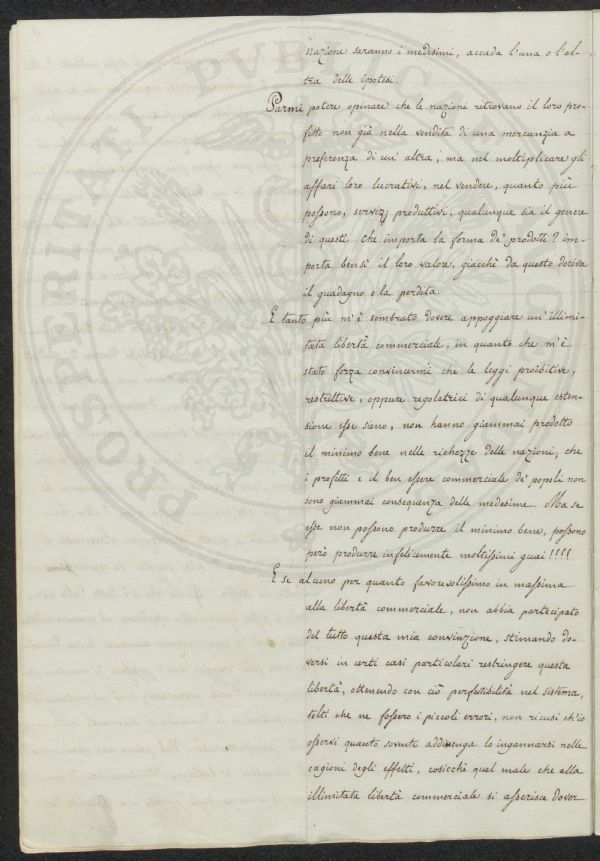 nazione saranno i medesimi, accada l'una o l'al-
tra delle ipotesi.
Parmi potere opinare che le nazioni ritrovano il loro pro-
fitto non già nella vendita di una mercanzia a
preferenza di un' altra, ma nel moltiplicare gli
affari loro lucrativi, nel vendere, quanto più
possono, servizj produttivi, qualunque sia il genere
di questi. Che importa la forma de' prodotti? im-
porta bensì il loro valore, giacchè da questo deriva
il guadagno o la perdita.
E tanto più m'è sembrato dovere appoggiare un' illimi-
tata libertà commerciale, in quanto che m'è
stato forza convincermi che le leggi proibitive,
restrittive, oppure regolatrici di qualunque esten-
sione esse sieno, non hanno giammai prodotto
il minimo bene nelle richezze delle nazioni, che
i profitti e il ben essere commerciale de' popoli non
sono giammai conseguenza delle medesime. Ma se
esse non possono produrre il minimo bene, possono
però produrre infelicemente moltissimi guai!!!!
E se alcuno per quanto favorevolissimo in massima
alla libertà commerciale, non abbia partecipato
del tutto questa mia convinzione, stimando do-
versi in certi casi particolari restringere questa
libertà, ottenendo con ciò perfettibilità nel sistema,
tolti che ne fossero i piccoli errori, non ricusi ch'io
osservi quanto sovente addivenga lo ingannarsi nelle
cagioni degli effetti, cosicchè quel male che alla
illimitata libertà commerciale si asserisce dover
PROSPERITATI PVBLICAE